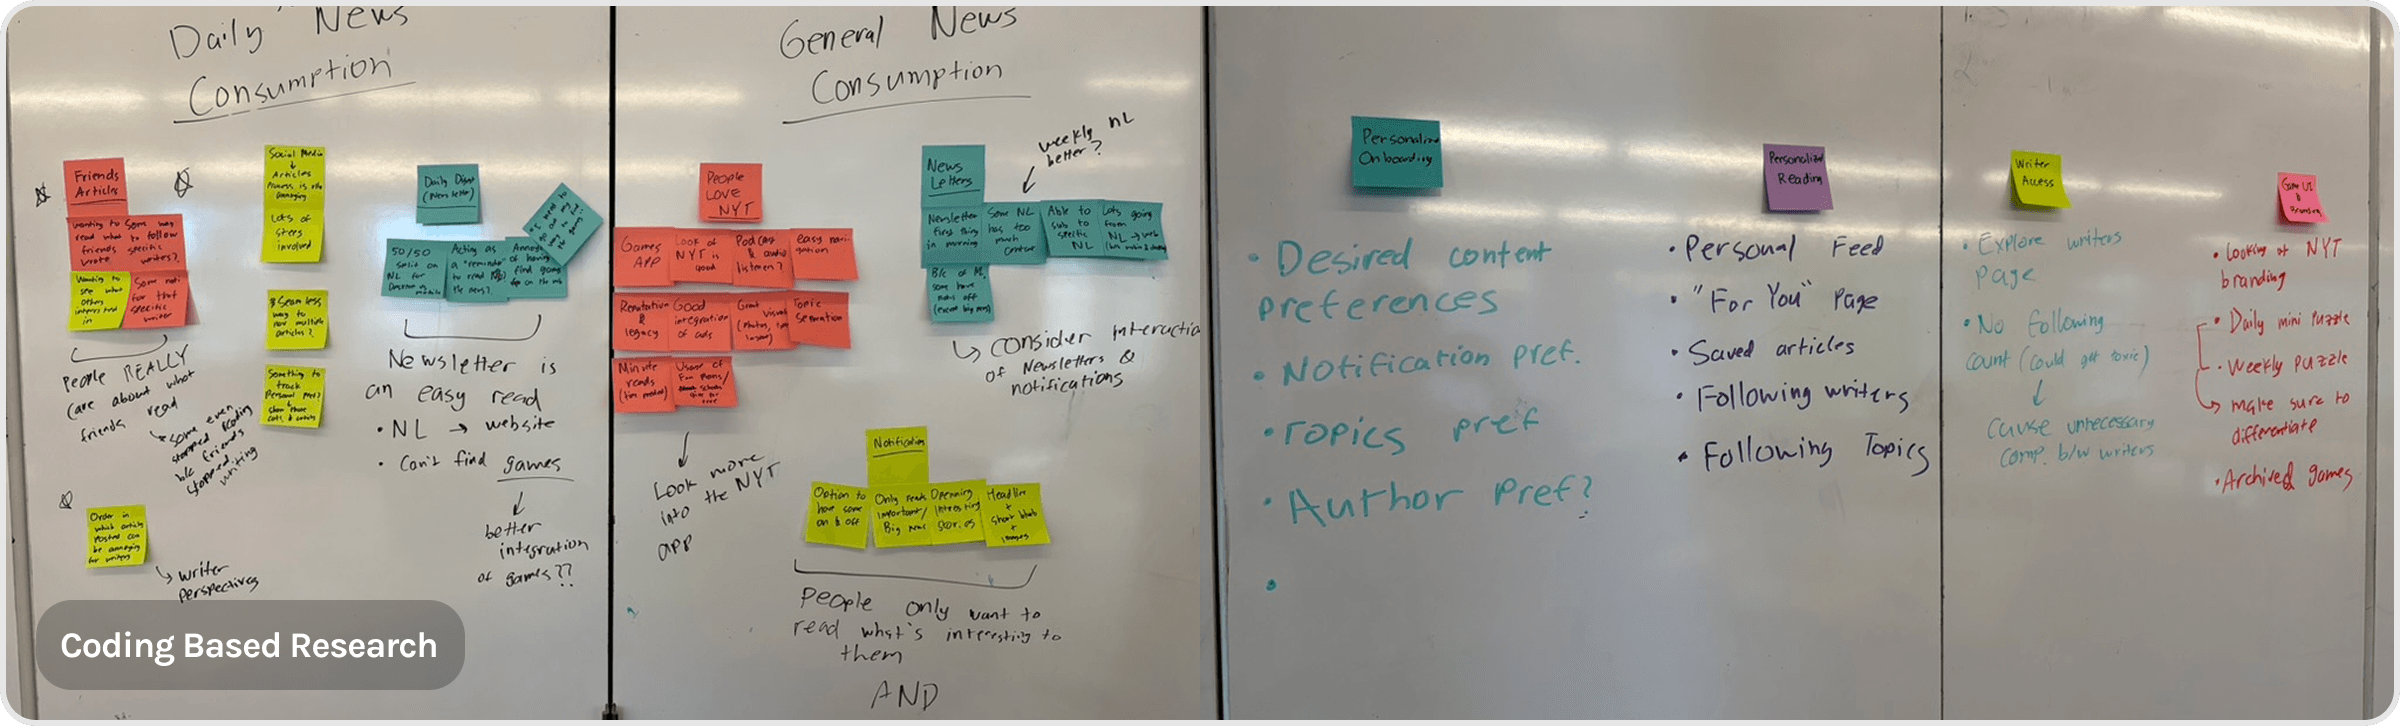 Daily News
Consumption
Friends
Articles
wanting to
read what
friends
wrote
Some way
to follow
specific
writers?
Wanting to
see what
others
interested
in
Some noti
for that
specific
writer
People REALLY
care about what
friends read
some even
stopped reading
b/c friends
stopped
writing
Order in
which articles
Posted can
be annoying
for writers
writer
perspectives
Social Media
Articles
Process is
annoying
Lots of
steps
involved
Seamless
way to
multiple
articles?
Something to
track
Personal Pref?
Daily
(Newsletter)
50/50
split on
NL for
Acting as
a "reminder"
to read
the news?
Newsletter is
an easy read
• NL → website
• Can't find games
better
integration
of games??
General News
Consumption
PEOPLE
LOVE
NYT
Games
APP
Look of
NYT is
good
Podcast
& audio
listener?
easy navi-
gation
Reputation
&
legacy
Good
integration
of ads
Great visual
Topic
Separation
Minute
reads
Look more
into the NYT
app
News
Letters
weekly NL
better?
Newsletter
first thing
in morning
Some NL
has too
much
content
Able to
sub to
specific
NL
Lots going
from
NL → web
consider interactio
of Newsletters &
notifications
Notification
Option to
have some
on & off
Only reads
important/
Big news
Opening
Interesting
stories
Headline
+
short blurb
+
images
People only want to
read what's interesting to
them
AND
Personalize
Onboarding
• Desired content
preferences
• Notification pref.
• Topics pref
• Author Pref?
Personalized
Reading
• Personal Feed
• "For You" Page
• Saved articles
• Following writers
• Following Topics
Writer
Access
• Explore writers
page
• No following
count (could get toxic)
cause unnecessary
comp. b/w writers
Game UI
&
Branding
• Looking at NYT
branding
• Daily mini puzzle
• Weekly puzzle
make sure to
differentiate
• Archived games
Coding Based Research